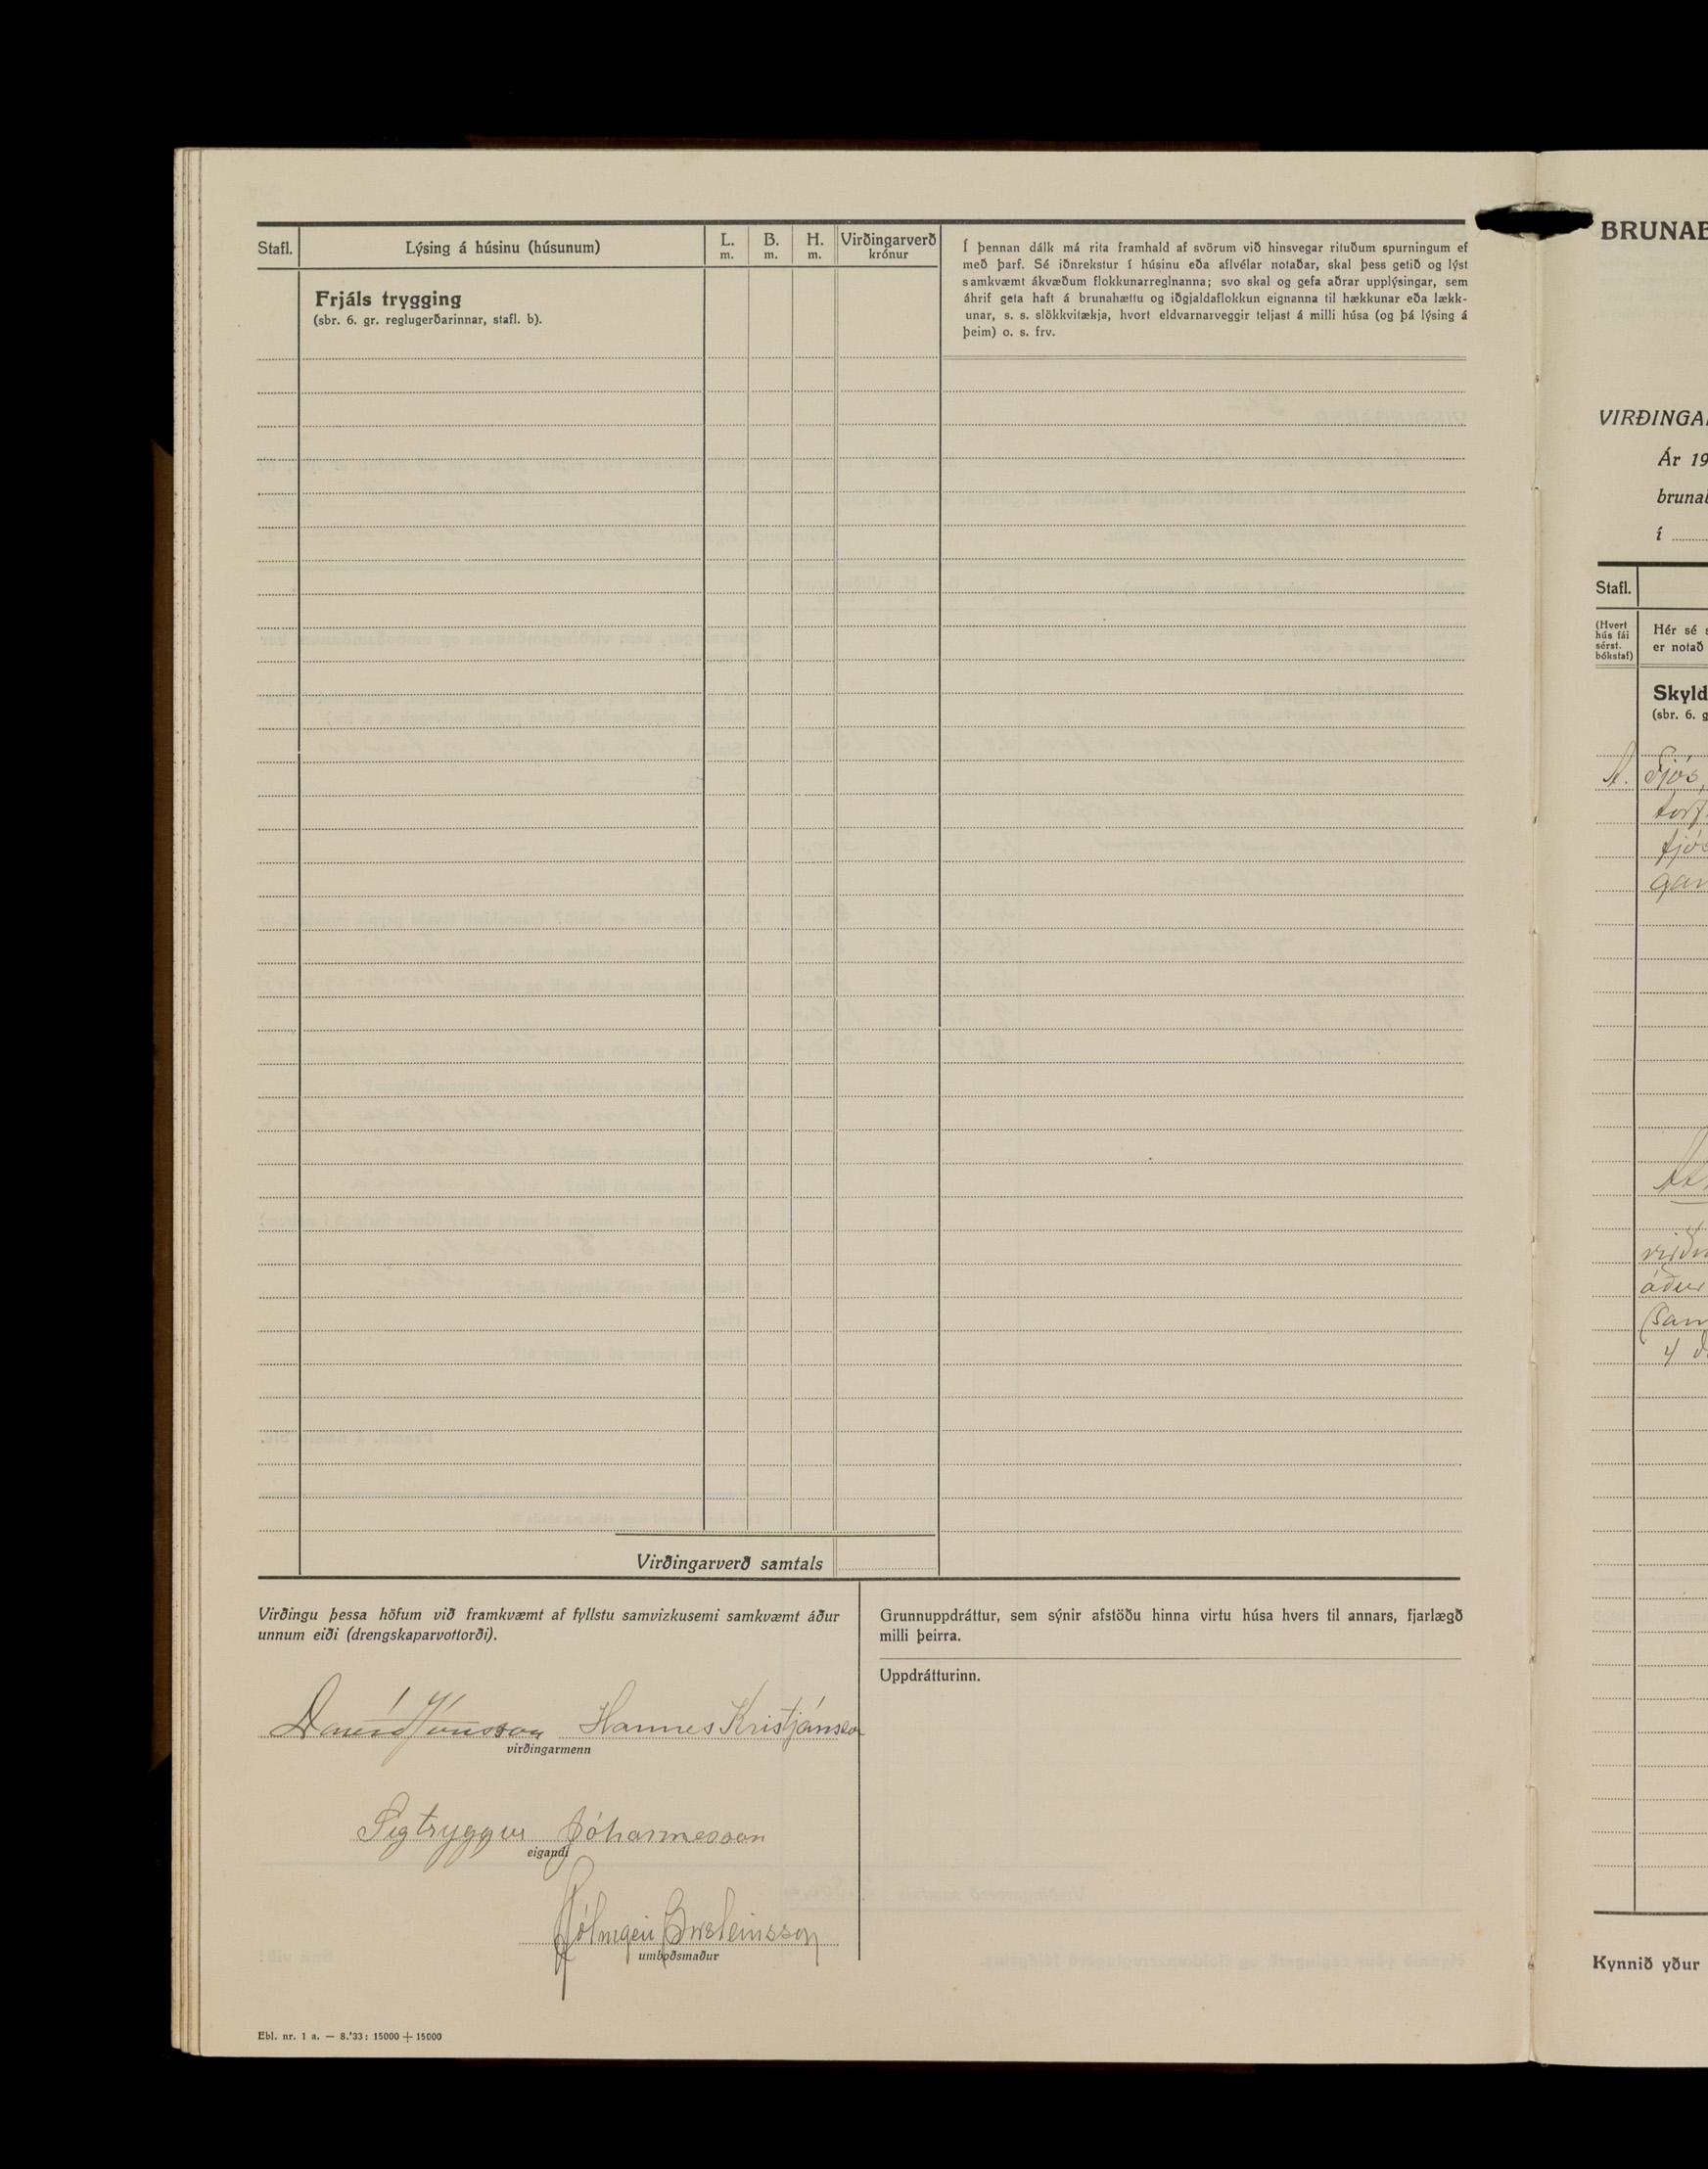 Stafl. Lýsing á húsinu (húsunum) L. m. B. m. H. m. Virðingarverð krónur
Frjáls trygging
(sbr. 6. gr. reglugerðarinnar, stafl. b).
Í þennan dálk má rita framhald af svörum við hinsvegar rituðum spurningum ef
með þarf. Sé iðnrekstur í húsinu eða aflvélar notaðar, skal þess getið og lýst
samkvæmt ákvæðum flokkunarreglnanna; svo skal og gefa aðrar upplýsingar, sem
áhrif geta haft á brunahættu og iðgjaldaflokkun eignanna til hækkunar eða lækk-
unar, s. s. slökkvitækja, hvort eldvarnarveggir teljast á milli húsa (og þá lýsing á
þeim) o. s. frv.
Virðingarverð samtals
Virðingu þessa höfum við framkvæmt af fyllstu samvizkusemi samkvæmt áður
unnum eiði (drengskaparvottorði).
Davíð Jónsson Hannes Kristjánsson
virðingarmenn
Sigtryggur Jóhannesson
eigandi
Hólmgeir Þorsteinsson
umboðsmaður
Grunnuppdráttur, sem sýnir afstöðu hinna virtu húsa hvers til annars, fjarlægð
milli þeirra.
Uppdrátturinn.
Ebl. nr. 1 a. — 8.'33: 15000 + 15000
BRUNAB
VIRÐINGA
Ár 19
brunab
í
Stafl.
(Hvert
hús fái
sérst.
bókstaf)
Hér sé s
er notað
Skyld
(sbr. 6. g
A. Fjós,
torf
fjós
gan
virðn
áður
(sam
Kynnið yður